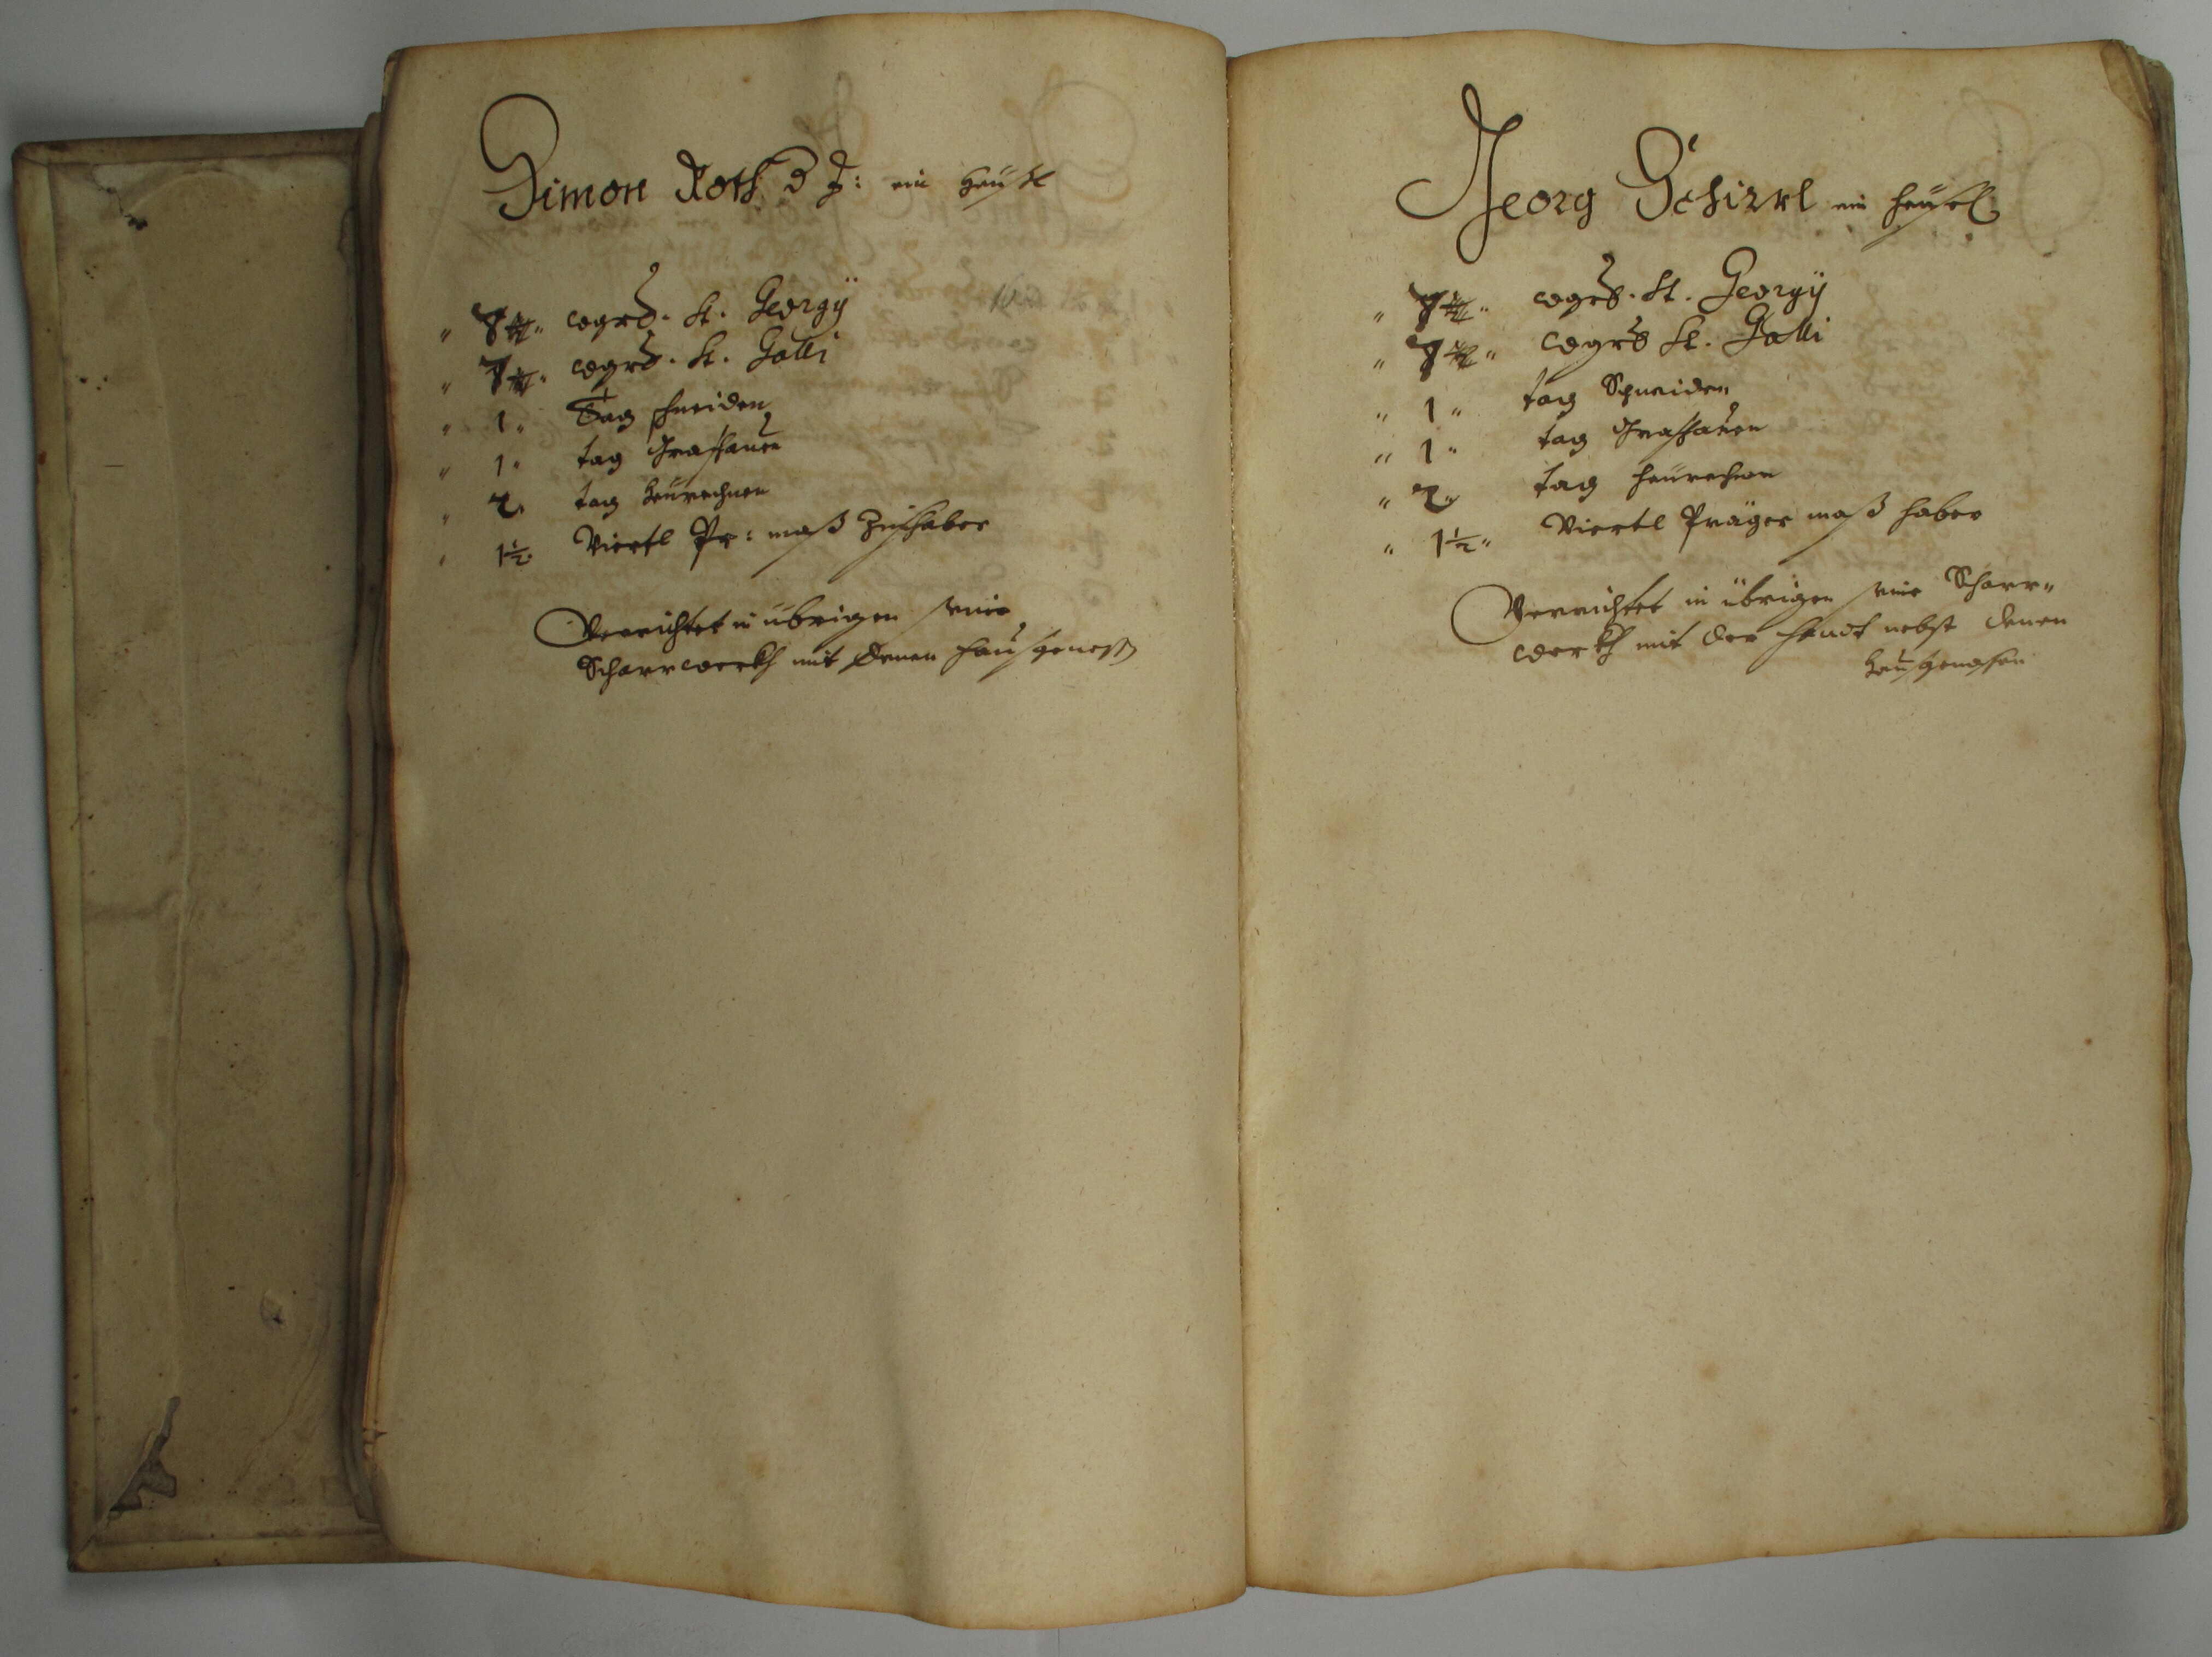 Simon Roth d J: ein Heüsl
" 8 wgrs. St. Georgÿ
" 7 wgrs. St. Galli
" 1 " Tag schneiden
" 1 " tag Grashauen
" 2 " tag heürechnen
" 1½ " Viertl Pr: maß Zinßhaber
Verrichtet in übrigen seine
Scharrwerkh mit denen Haußgenoss
Georg Schirrl ein Heüsl
" wgrs. St. Georgÿ
" wgrs St. Galli
" 1 " tag Schneiden
" 1 " tag Grashauen
" 2 " tag heürechen
" 1½ " Viertl Präger maß haber
Verrichtet in übrigen seine Scharr"
werkh mit der Handt nebst denen
Haußgenossen